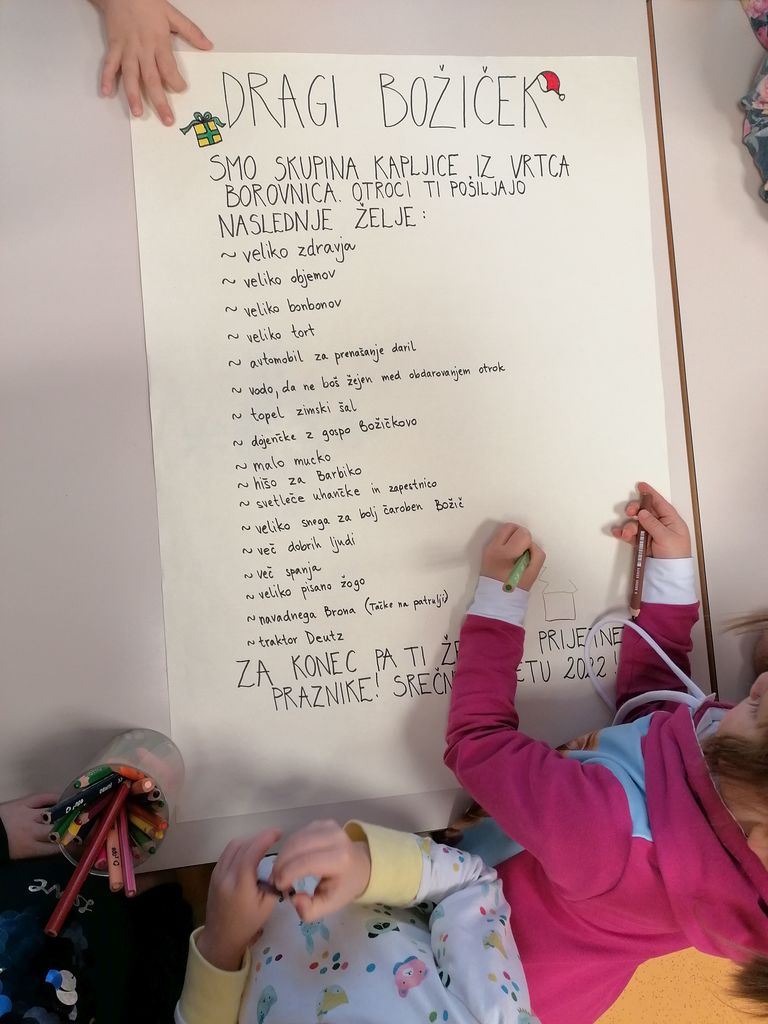 DRAGI BOŽIČEK
SMO SKUPINA KAPLJICE IZ VRTCA
BOROVNICA. OTROCI TI POŠILJAJO
NASLEDNJE ŽELJE:
~ veliko zdravja
~ veliko objemov
~ veliko bonbonov
~ veliko tort
~ avtomobil za prenašanje daril
~ vodo, da ne boš žejen med obdarovanjem otrok
~ topel zimski šal
~ dojenčke z gospo Božičkovo
~ malo mucko
~ hišo za Barbiko
~ svetleče uhančke in zapestnico
~ veliko snega za bolj čaroben Božič
~ več dobrih ljudi
~ več spanja
~ veliko pisano žogo
~ navadnega Brona (Tačke na patrulji)
~ traktor Deutz
ZA KONEC PA TI PRIJETNE
PRAZNIKE! 2022!